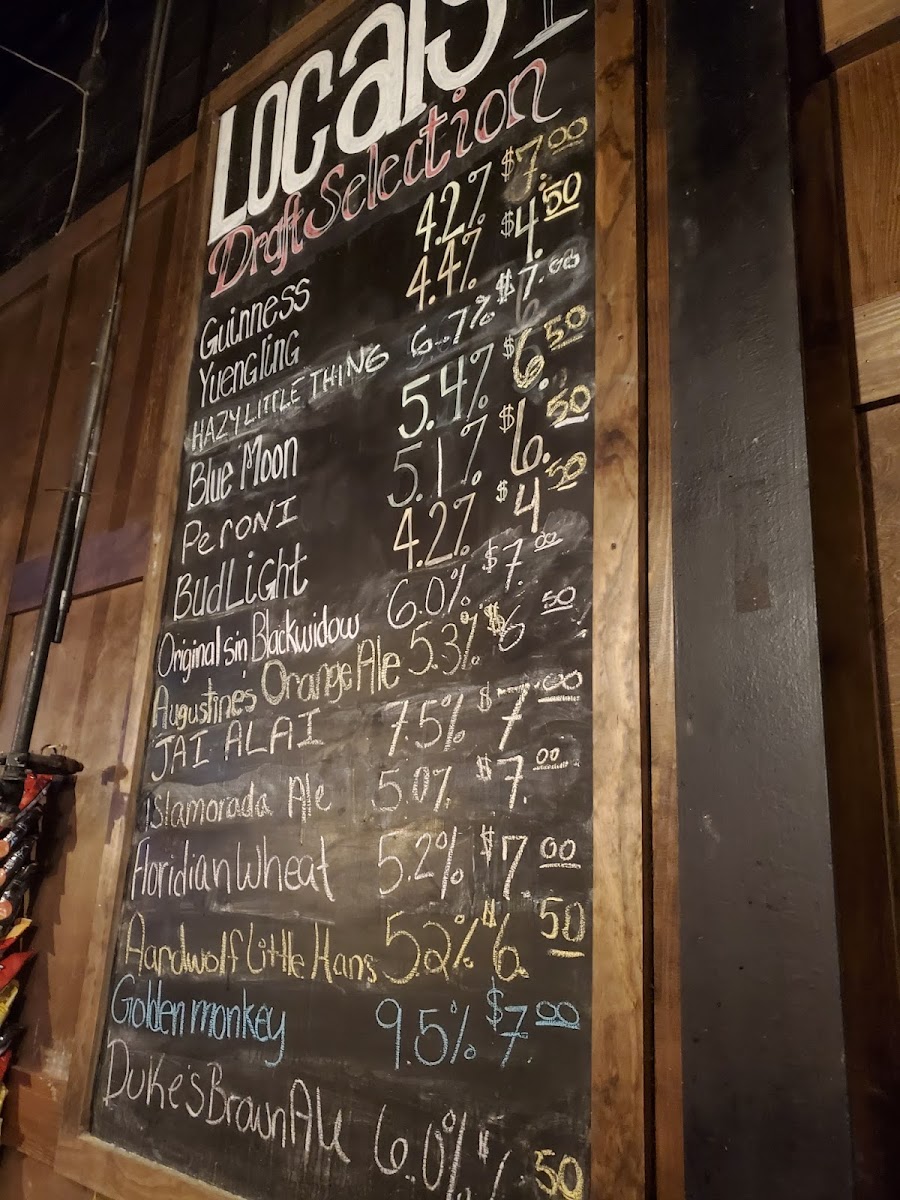 Locals
Draft Selection
Guinness 4.2% $7.00
Yuengling 4.4% $4.50
HAZY LITTLE THING 6.7% $7.00
Blue Moon 5.4% $6.50
PeroNI 5.1% $6.50
BudLiGht 4.2% $4.50
Original sin Blackwidow 6.0% $7.00
Augustine's Orange Ale 5.3% $6.50
JAI ALAI 7.5% $7.00
islamorada Ale 5.0% $7.00
Floridian Wheat 5.2% $7.00
Aardwolf Little Hans 5.2% $6.50
Golden monkey 9.5% $7.00
Duke's Brown Ale 6.0% $ 50